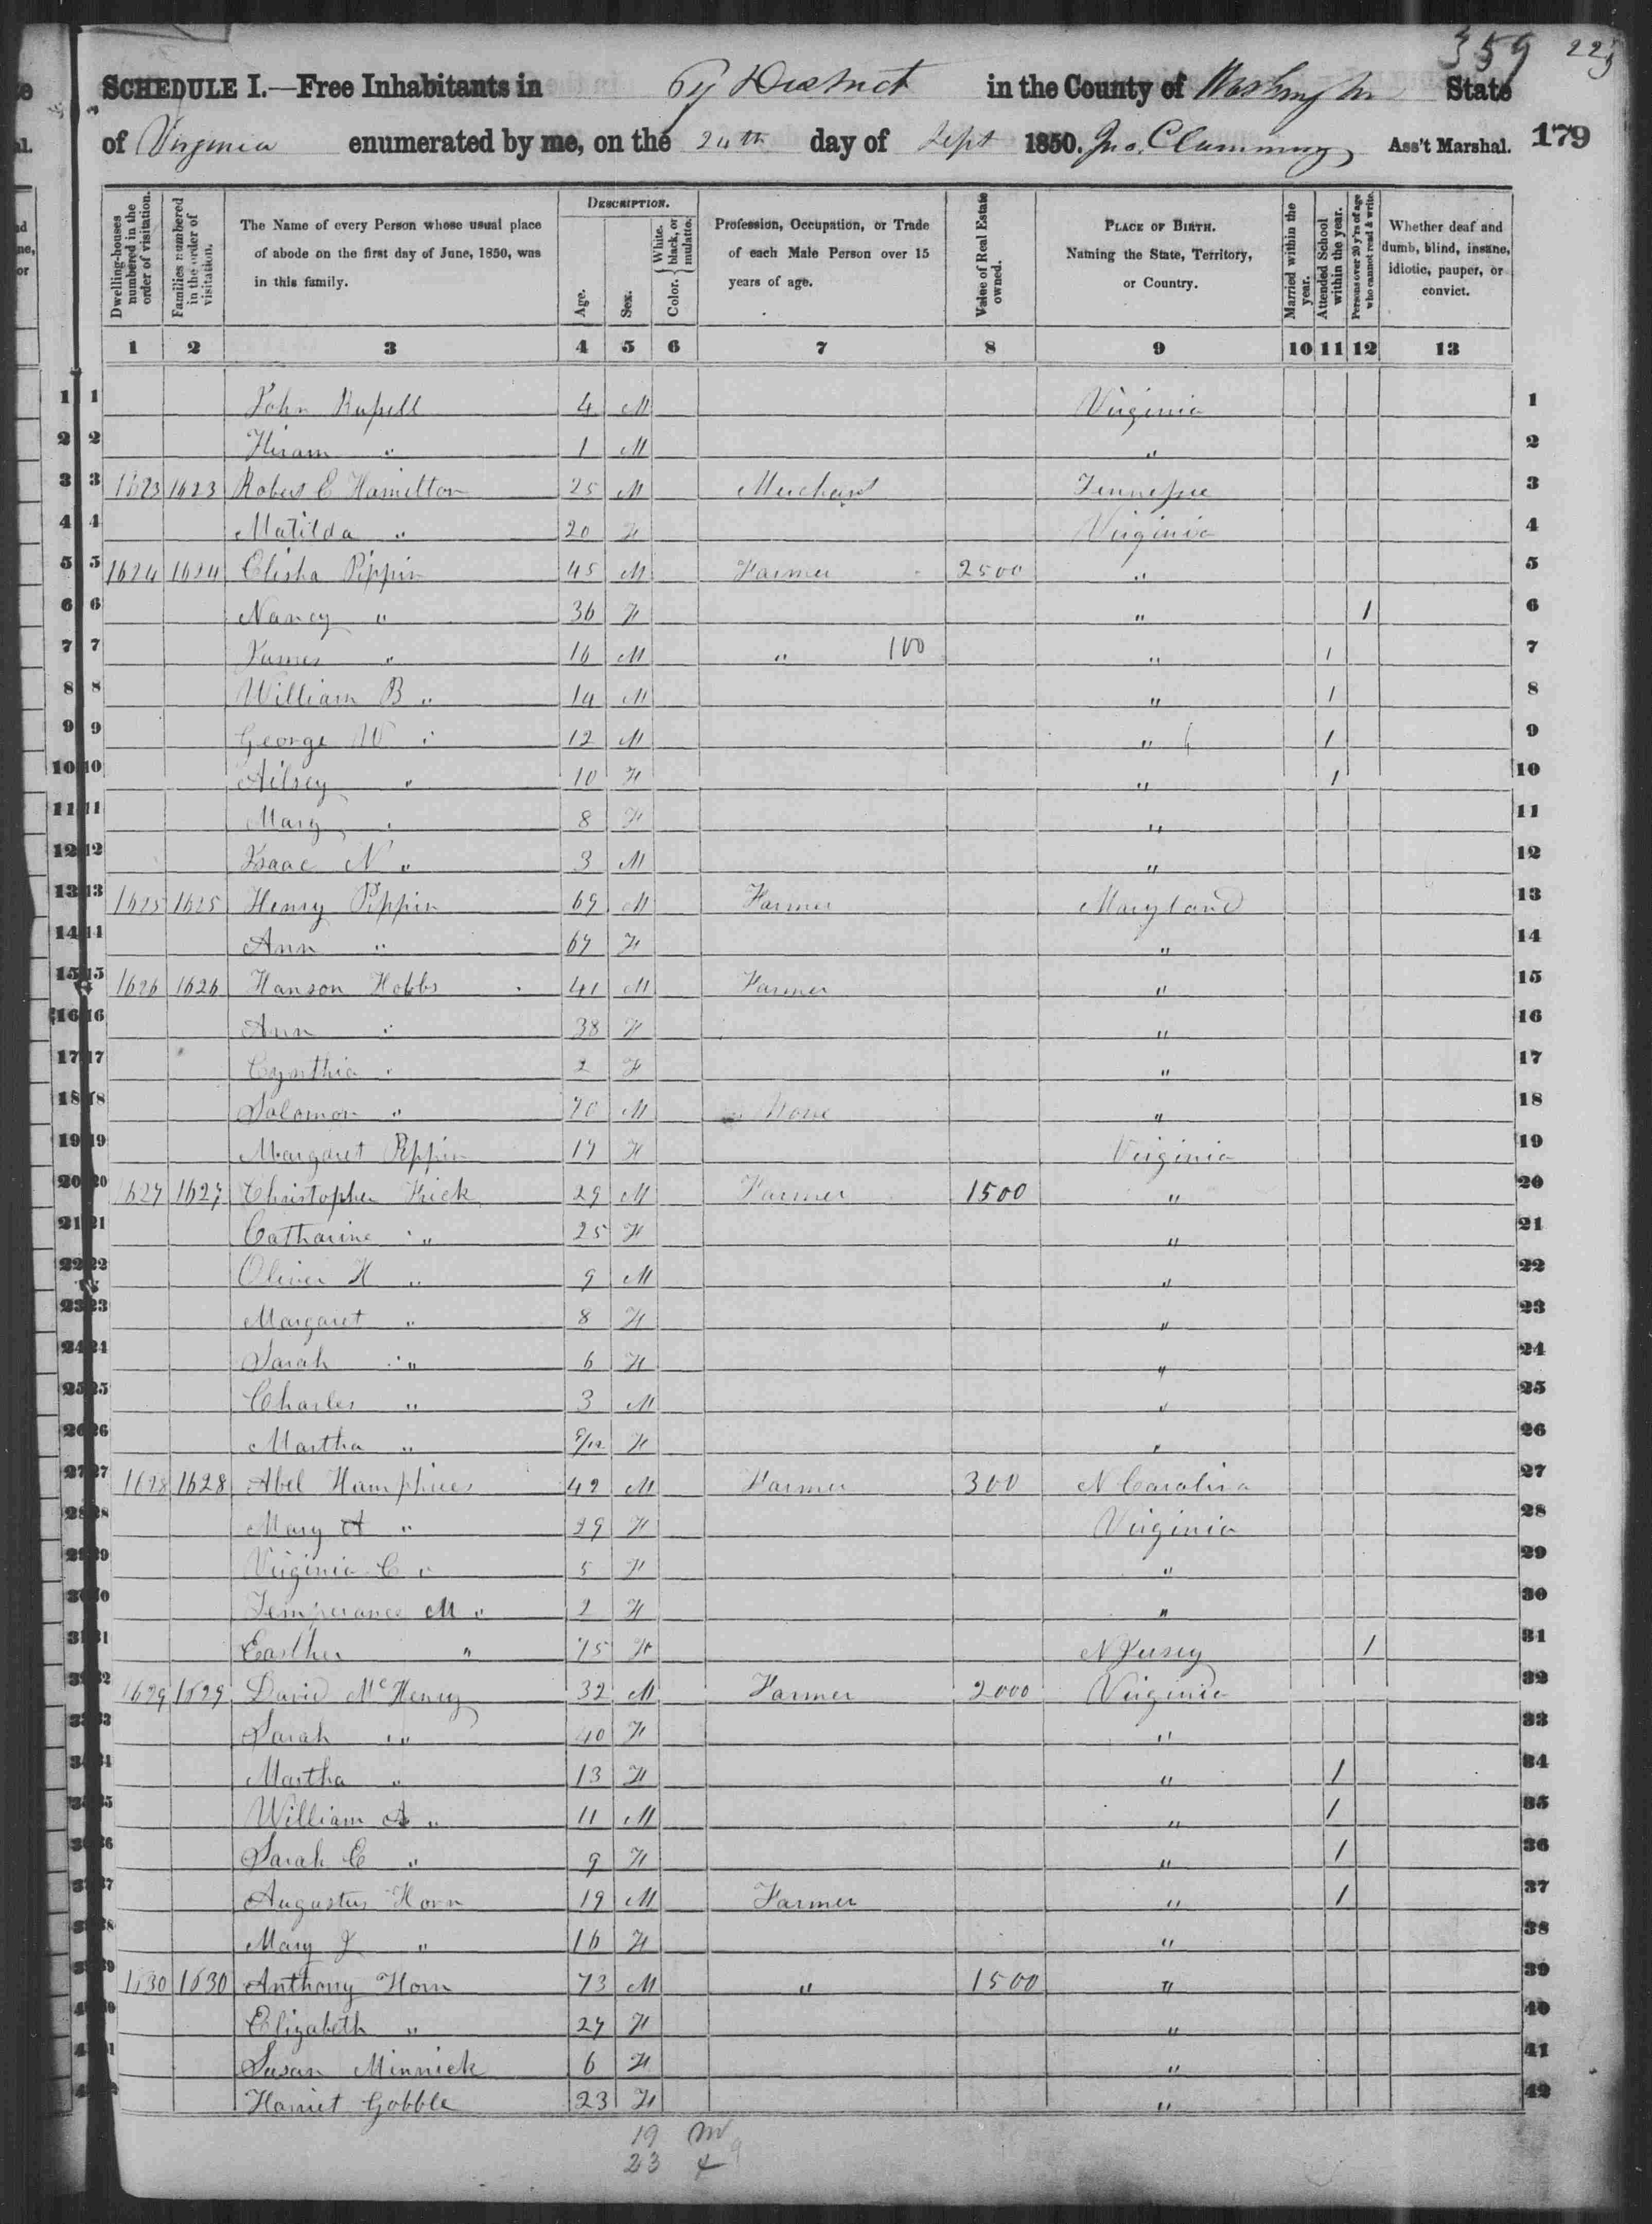 359 225
SCHEDULE I.—Free Inhabitants in 67 District in the County of Washington State
of Virginia enumerated by me, on the 24th day of Sept 1850. Jno. C Cummings Ass't Marshal. 179
Dwelling-houses numbered in the order of visitation.
Families numbered in the order of visitation.
The Name of every Person whose usual place of abode on the first day of June, 1850, was in this family.
DESCRIPTION.
Age.
Sex.
Color. { White, black, or mulatto.
Profession, Occupation, or Trade of each Male Person over 15 years of age.
Value of Real Estate owned.
PLACE OF BIRTH. Naming the State, Territory, or Country.
Married within the year.
Attended School within the year.
Persons over 20 y'rs of age who cannot read & write.
Whether deaf and dumb, blind, insane, idiotic, pauper, or convict.
1 2 3 4 5 6 7 8 9 10 11 12 13
1 John Russell 4 M Virginia 1
2 Hiram " 1 M " 2
3 1623 1623 Robert C Hamilton 25 M Merchant Tennessee 3
4 Matilda " 20 F Virginia 4
5 1624 1624 Elisha Pippin 45 M Farmer 2500 " 5
6 Nancy " 36 F " 1 6
7 James " 16 M " 100 " 1 7
8 William B " 14 M " 1 8
9 George W " 12 M " 1 9
10 Ailsey " 10 F " 1 10
11 Mary " 8 F " 11
12 Isaac N " 3 M " 12
13 1625 1625 Henry Pippin 69 M Farmer Maryland 13
14 Ann " 67 F " 14
15 1626 1626 Hanson Hobbs 41 M Farmer " 15
16 Ann " 38 F " 16
17 Cynthia " 2 F " 17
18 Solomon " 70 M None " 18
19 Margaret Pippin 17 F Virginia 19
20 1627 1627 Christopher Frick 29 M Farmer 1500 " 20
21 Catharine " 25 F " 21
22 Oliver H " 9 M " 22
23 Margaret " 8 F " 23
24 Sarah " 6 F " 24
25 Charles " 3 M " 25
26 Martha " 8/12 F " 26
27 1628 1628 Abel Humphries 42 M Farmer 300 N Carolina 27
28 Mary A " 29 F Virginia 28
29 Virginia C " 5 F " 29
30 Temperance M " 2 F " 30
31 Easther " 75 F N Jersey 1 31
32 1629 1629 David McHenry 32 M Farmer 2000 Virginia 32
33 Sarah " 40 F " 33
34 Martha " 13 F " 1 34
35 William A " 11 M " 1 35
36 Sarah E " 9 F " 1 36
37 Augustus Horn 19 M Farmer " 1 37
38 Mary J " 16 F " 38
39 1630 1630 Anthony Horn 73 M " 1500 " 39
40 Elizabeth " 27 F " 40
41 Susan Minnick 6 F " 41
42 Harriet Gobble 23 F " 42
19 m
23 f